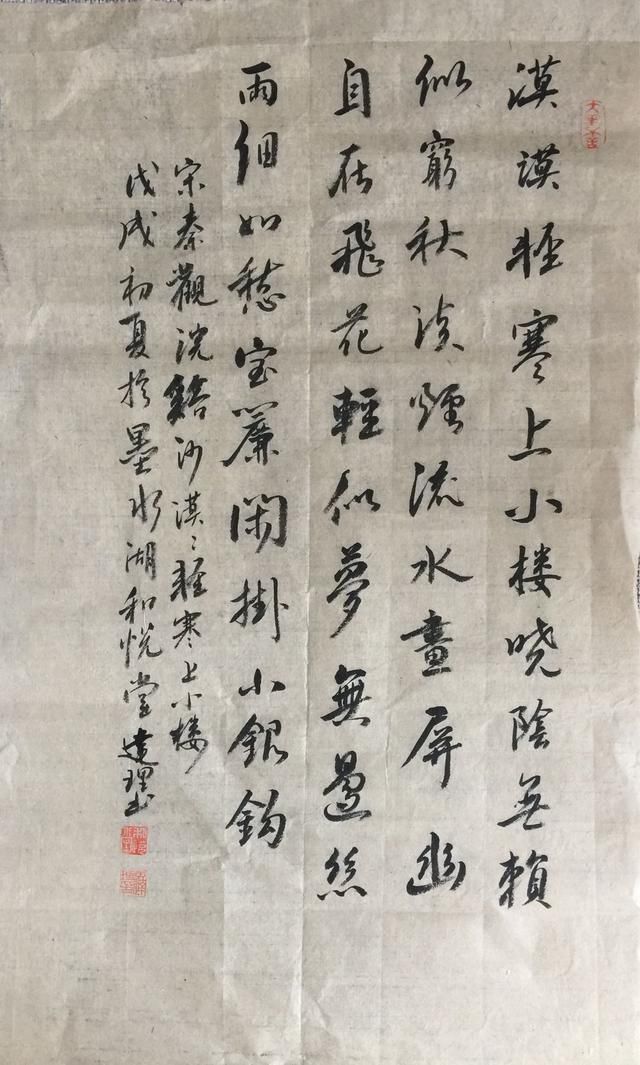 漠漠輕寒上小楼曉陰無賴
似窮秋淡煙流水畫屏幽
自在飛花輕似夢無邊絲
雨細如愁宝簾閑掛小銀鈎
宋秦觀浣谿沙漠〻輕寒上小楼
戊戌初夏於墨水湖和悦堂建理书